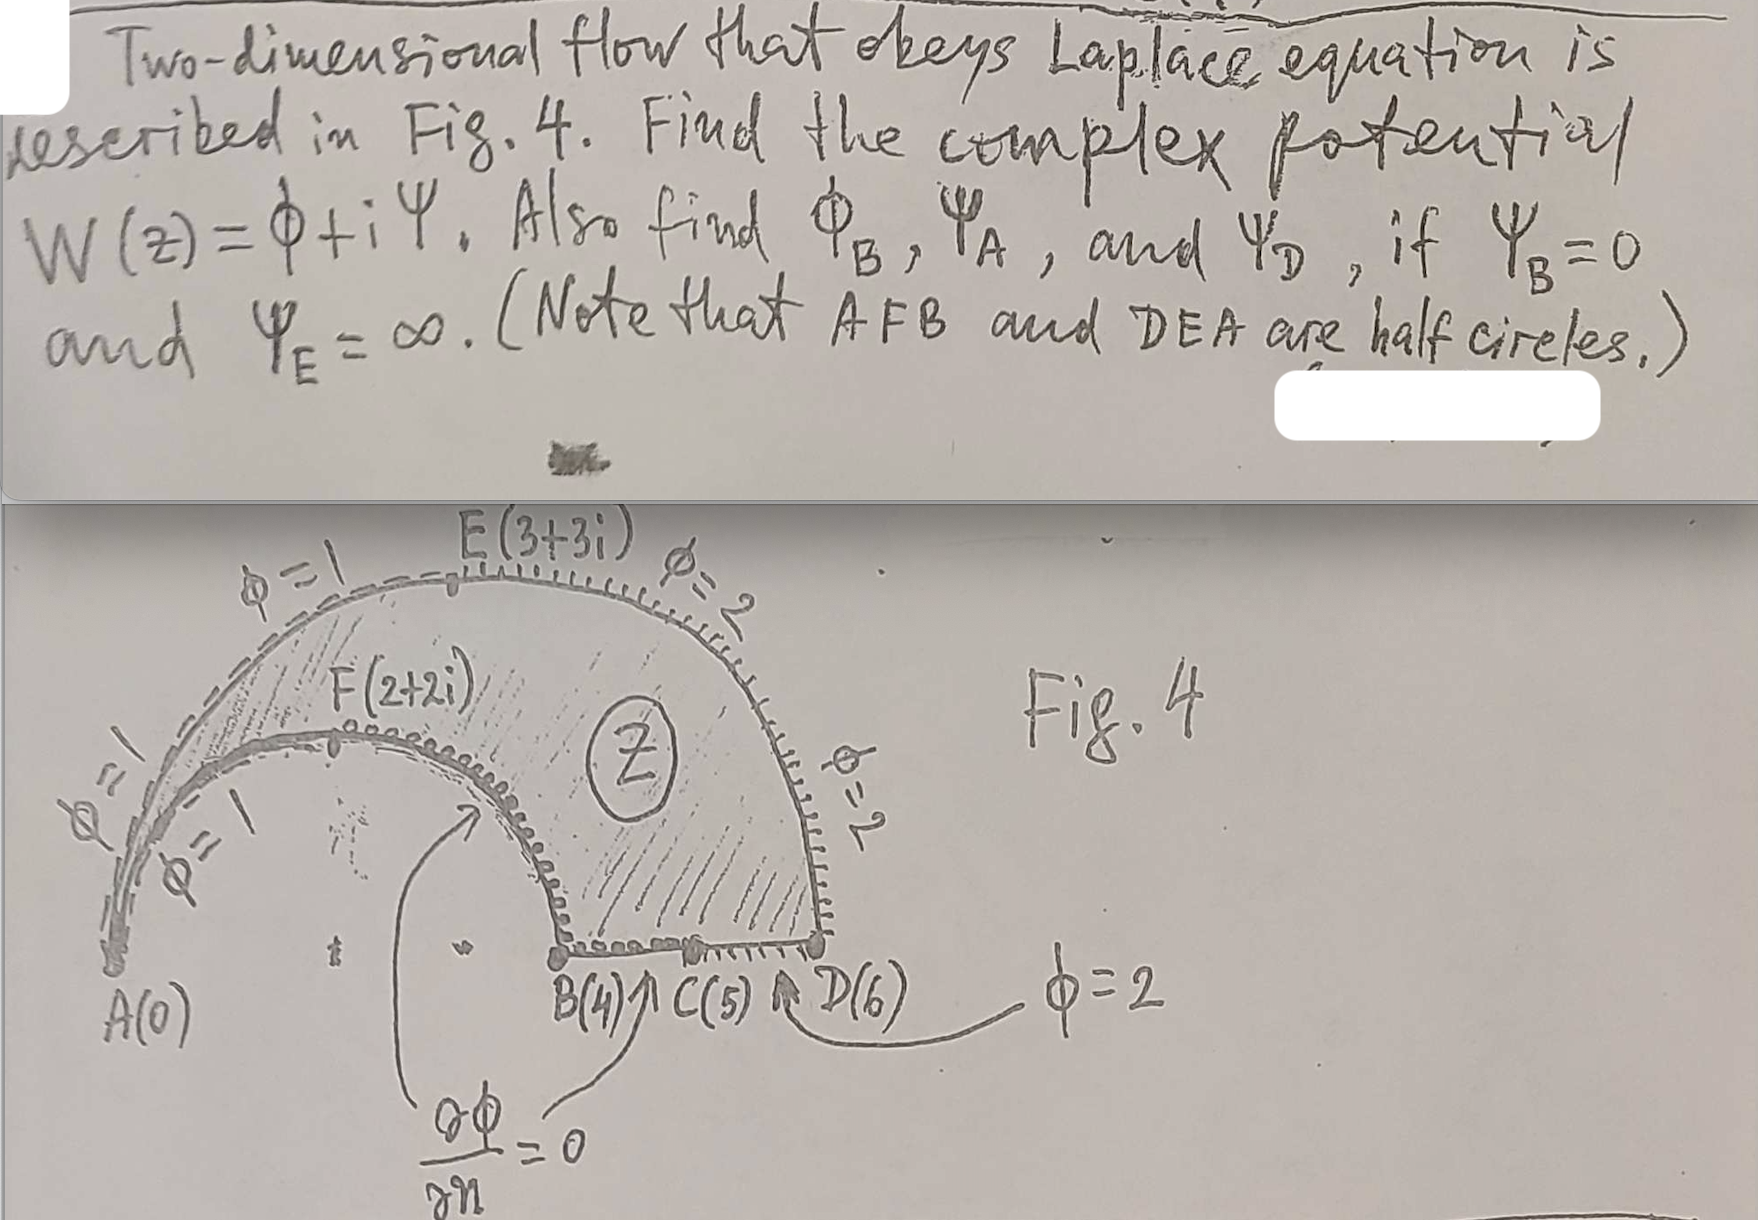 Two-dimensional flow that obeys Laplace equation is
described in Fig. 4. Find the complex potential
W(z) = ϕ + iΨ. Also find Φ_B, Ψ_A, and Ψ_D, if Ψ_B = 0
and Ψ_E = ∞. (Note that AFB and DEA are half circles.)
E(3+3i)
ϕ = 1
ϕ = 2
F(2+2i)
Z
Fig. 4
ϕ = 1
ϕ = 1
ϕ = 2
A(0)
B(4) C(5) D(6)
ϕ = 2
∂ϕ/∂n = 0